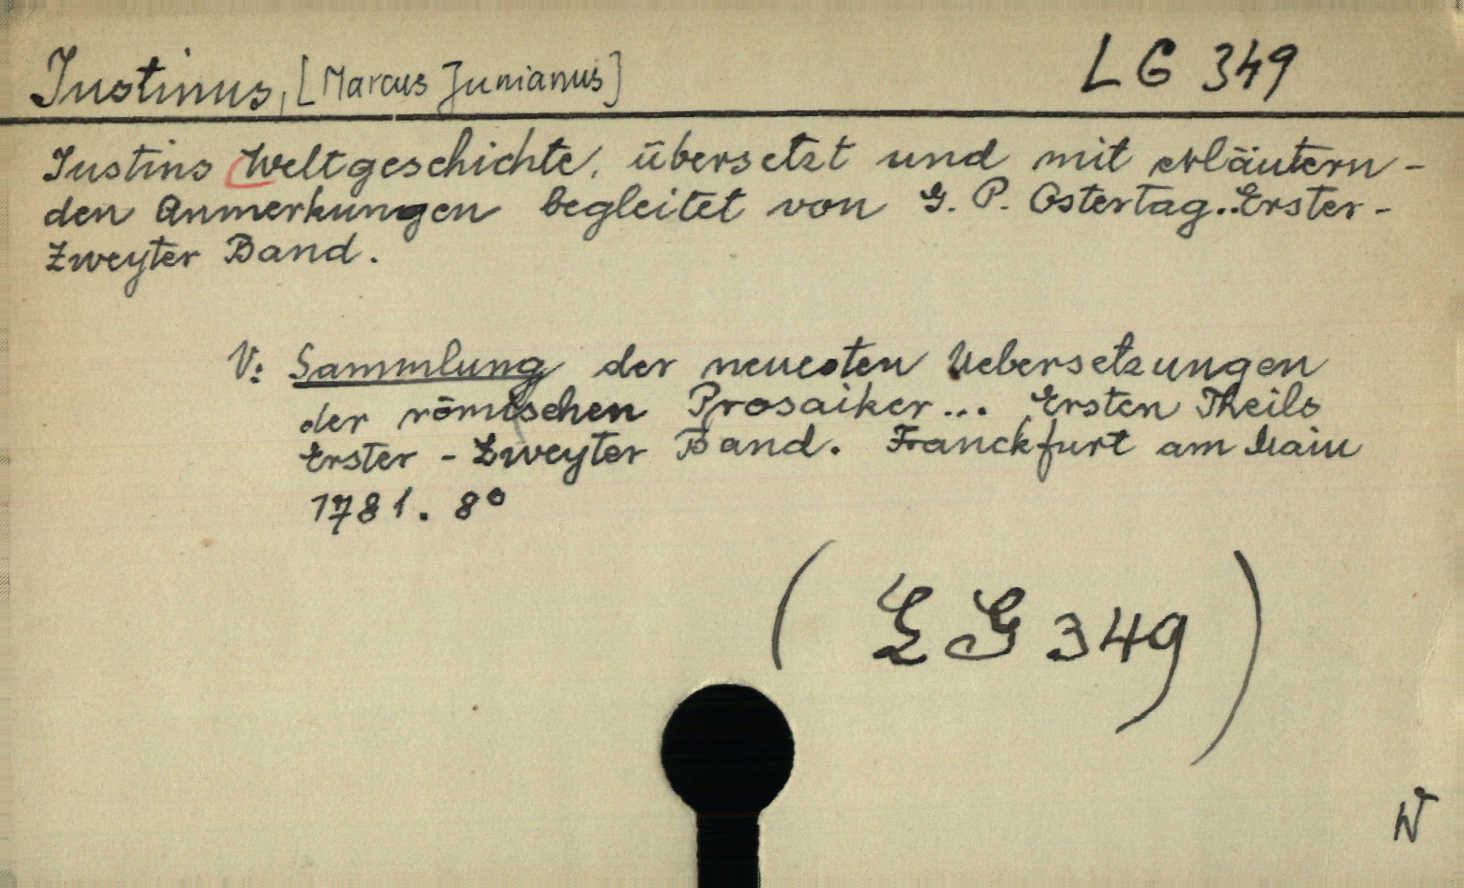 Iustinus, [Marcus Junianus] LG 349
Iustins Weltgeschichte, übersetzt und mit erläutern-
den Anmerkungen begleitet von G. P. Ostertag.. Erster-
Zweyter Band.
V: Sammlung der neuesten Uebersetzungen
der römischen Prosaiker... Ersten Theils
Erster - Zweyter Band. Franckfurt am Main
1781. 8°
(LG 349)
W